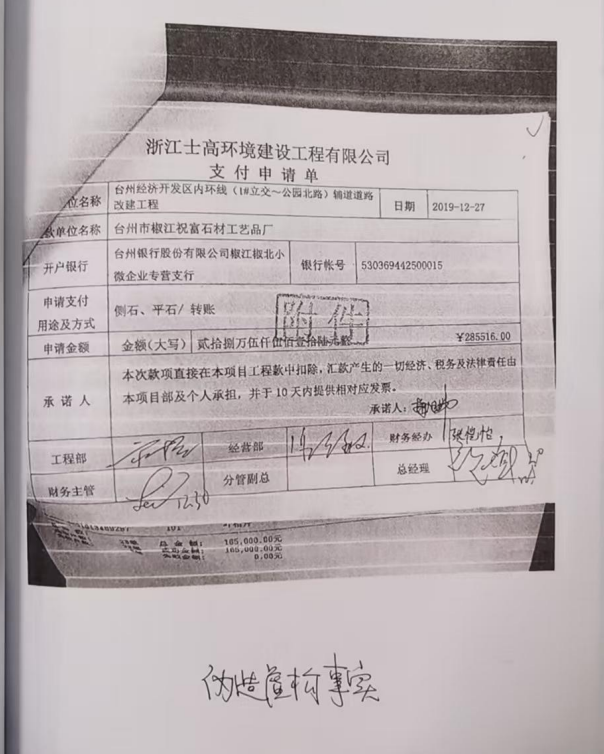 浙江士高环境建设工程有限公司
支付申请单
位名称 台州经济开发区内环线（1#立交～公园北路）辅道道路改建工程 日期 2019-12-27
款单位名称 台州市椒江祝富石材工艺品厂
开户银行 台州银行股份有限公司椒江椒北小微企业专营支行 银行帐号 530369442500015
申请支付用途及方式 侧石、平石/ 转账
附件
申请金额 金额(大写) 贰拾捌万伍仟伍佰壹拾陆元整 ¥285516.00
承诺人 本次款项直接在本项目工程款中扣除，汇款产生的一切经济、税务及法律责任由
本项目部及个人承担，并于10天内提供相对应发票。
承诺人：
工程部 经营部 财务经办
财务主管 12.30 分管副总 总经理
101
总金额： 165,000.00元
165,000.00元
0.00元
伪造 事实